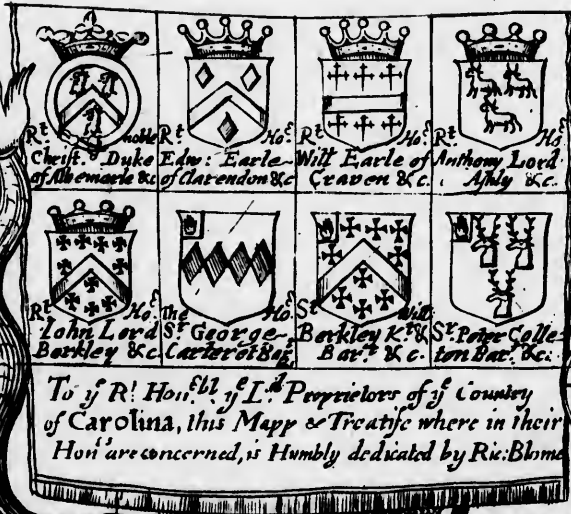 Rt noble
Christ. Duke
of Albemarle &c
Rt Hoe
Edw: Earle
of Clarendon &c
Rt Hoe
Willt Earle of
Craven &c.
Rt Hoe
Anthony Lord
Ashly &c.
Rt Hoe
Iohn Lord
Berkley &c
The Hoe
Sr George
Carteret Bar
Sr Will
Berkley Kt &
Bart &c
Sr Peter Colle-
ton Bart &c:
To ye Rt Honebl ye Lds Proprietors of ye Country
of Carolina, this Mapp & Treatise where in their
Honrs are concerned, is Humbly dedicated by Ric: Blome